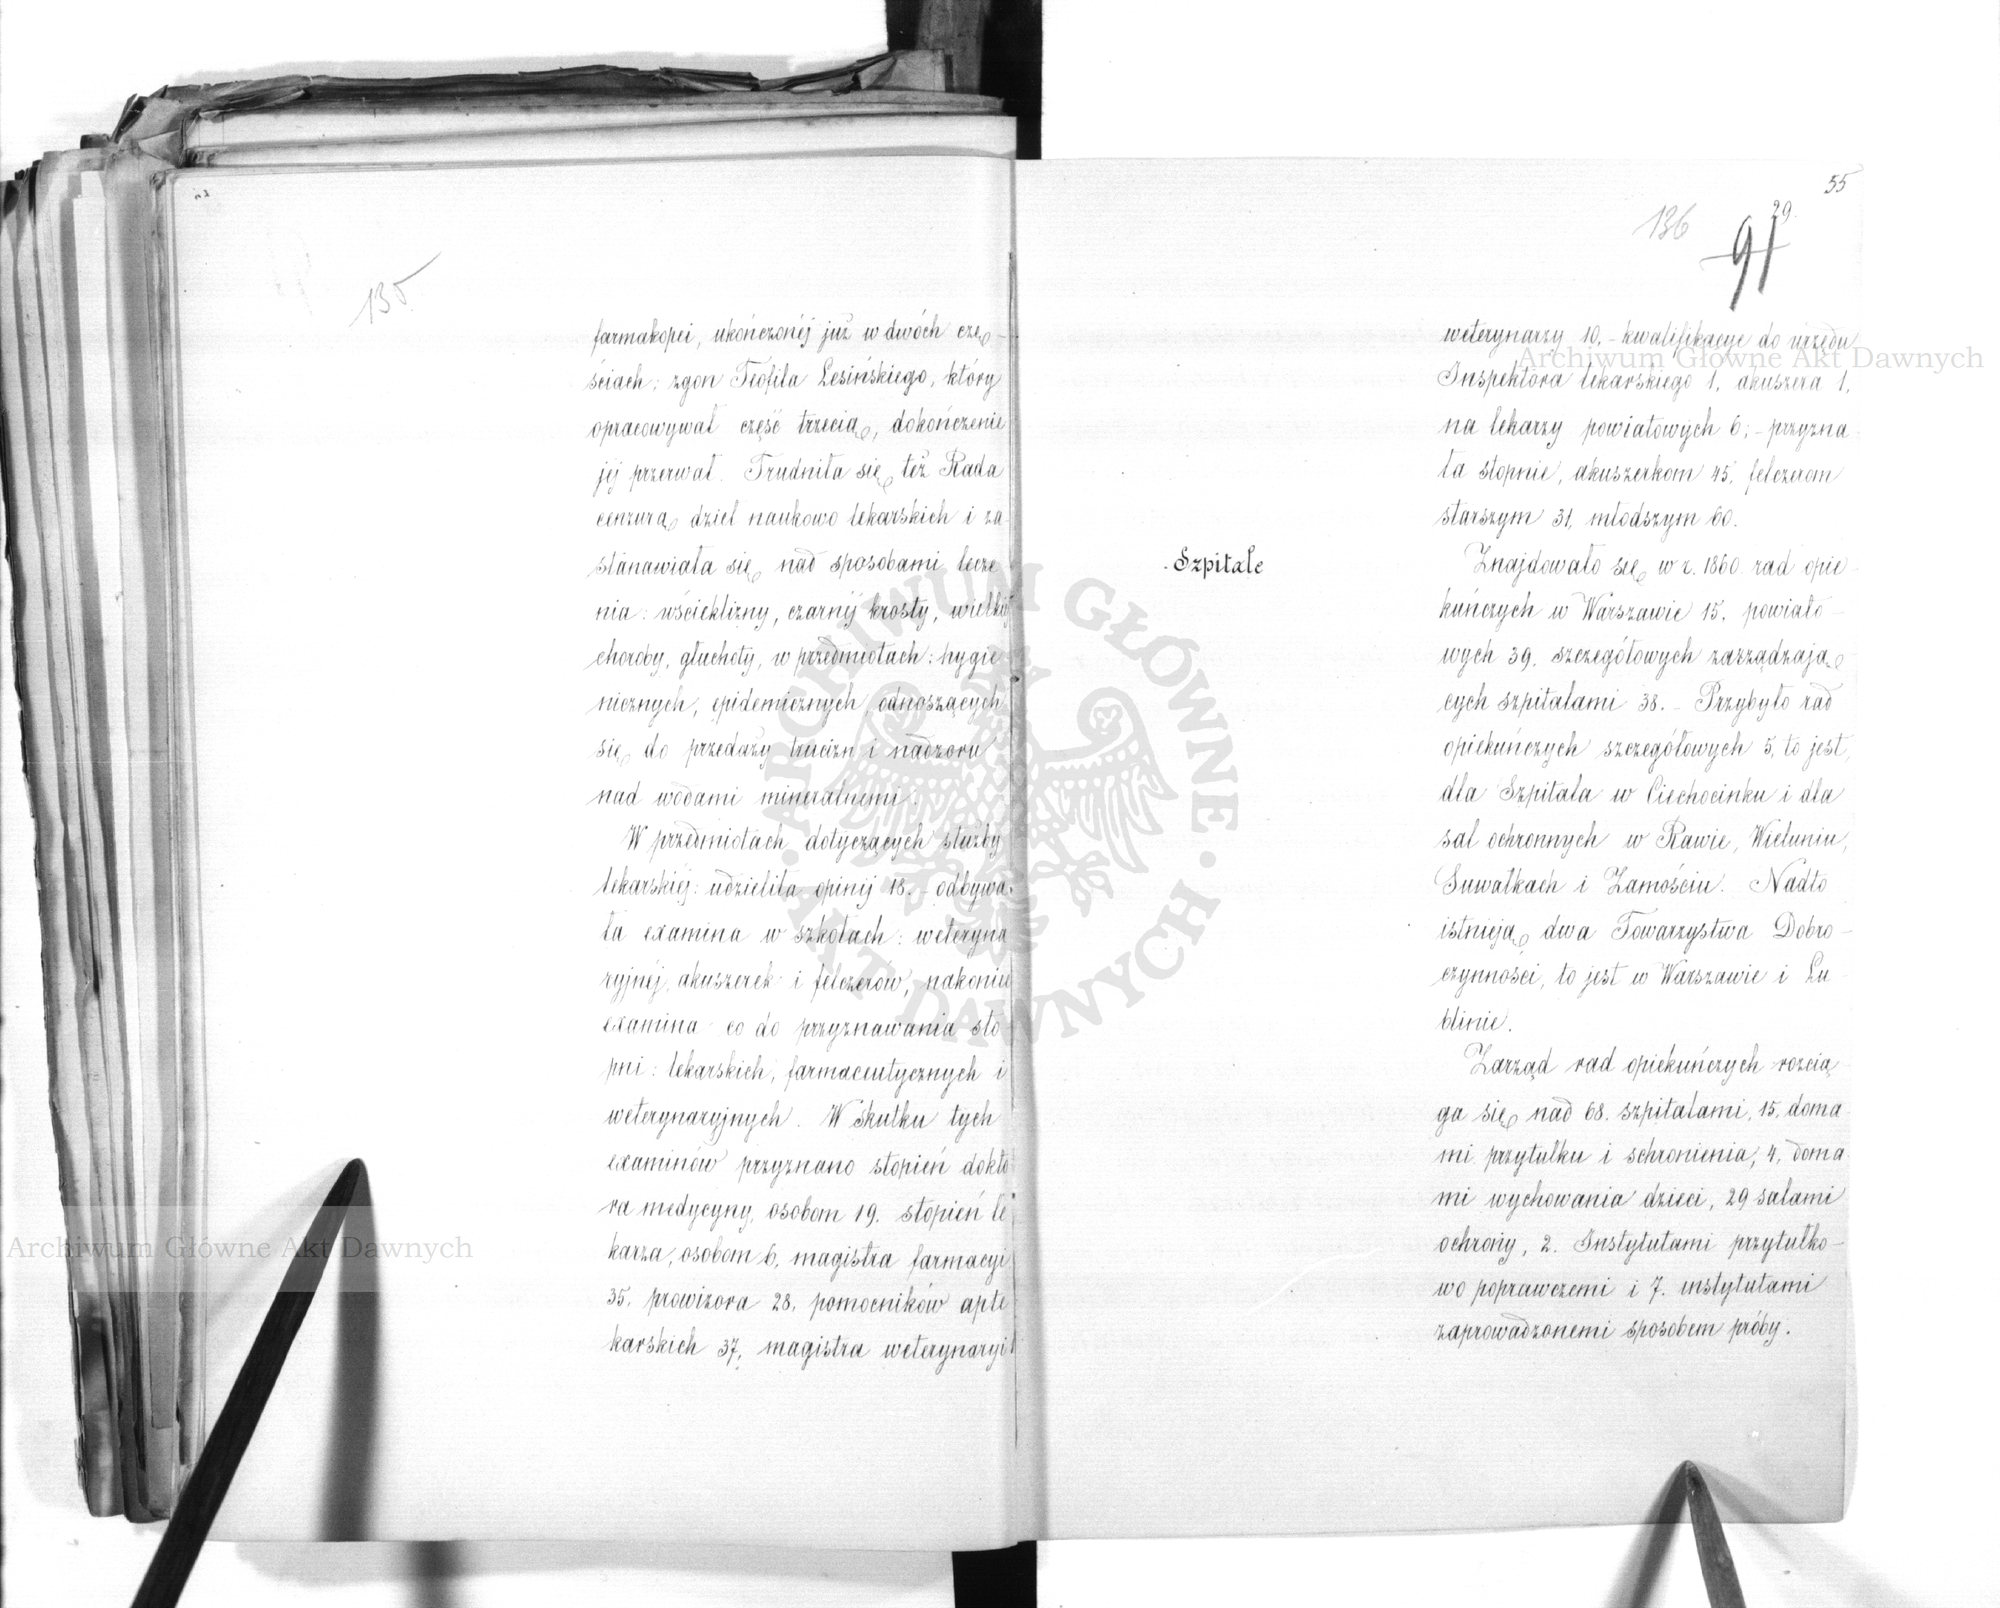 135
farmakopei, ukończonéj już w dwóch czę-
ściach; zgon Teófila Lesińskiego, który
opracowywał część trzecią, dokończenie
jéj przerwał. Trudniła się też Rada
cenzurą dzieł naukowo lekarskich i za-
stanawiała się nad sposobami lecze-
nia: wścieklizny, czarnéj krosty, wielkiéj
choroby, głuchoty, w przedmiotach: hygie-
nicznych, epidemicznych odnoszących
się do przedaży trucizn i nadzoru
nad wodami mineralnemi.
W przedmiotach dotyczących służby
lekarskiéj: udzieliła opinij 18. – odbywa-
ła examina w szkołach: weteryna-
ryjnéj, akuszerek i felczerów, nakoniec
examina co do przyznawania sto-
pni: lekarskich, farmaceutycznych i
weterynaryjnych. W skutku tych
examinów przyznano stopień dokto-
ra medycyny, osobom 19. stopień le-
karza, osobom 6, magistra farmacyi
35. prowizora 28, pomocników apte-
karskich 37, magistra weterynaryi 1
55
136
29.
91
weterynarzy 10. – kwalifikacye do urzędu
Inspektora lekarskiego 1, akuszera 1,
na lekarzy powiatowych 6; – przyzna-
ła stopnie, akuszerkom 45, felczerom
starszym 31, młodszym 60.
Szpitale
Znajdowało się w r. 1860 rad opie-
kuńczych w Warszawie 15, powiato-
wych 39, szczegółowych zarządzają-
cych szpitalami 38. – Przybyło rad
opiekuńczych szczegółowych 5, to jest,
dla Szpitala w Ciechocinku i dla
sal ochronnych w Rawie, Wieluniu,
Suwałkach i Zamościu. Nadto
istnieją dwa Towarzystwa Dobro-
czynności, to jest w Warszawie i Lu-
blinie.
Zarząd rad opiekuńczych rozcią-
ga się nad 68. szpitalami, 15. doma-
mi przytułku i schronienia, 4, doma-
mi wychowania dzieci, 29 salami
ochrony, 2. Instytutami przytułko-
wo poprawczemi i 7. instytutami
zaprowadzonemi sposobem próby.
Archiwum Główne Akt Dawnych
Archiwum Główne Akt Dawnych
ARCHIWUM GŁÓWNE
AKT DAWNYCH